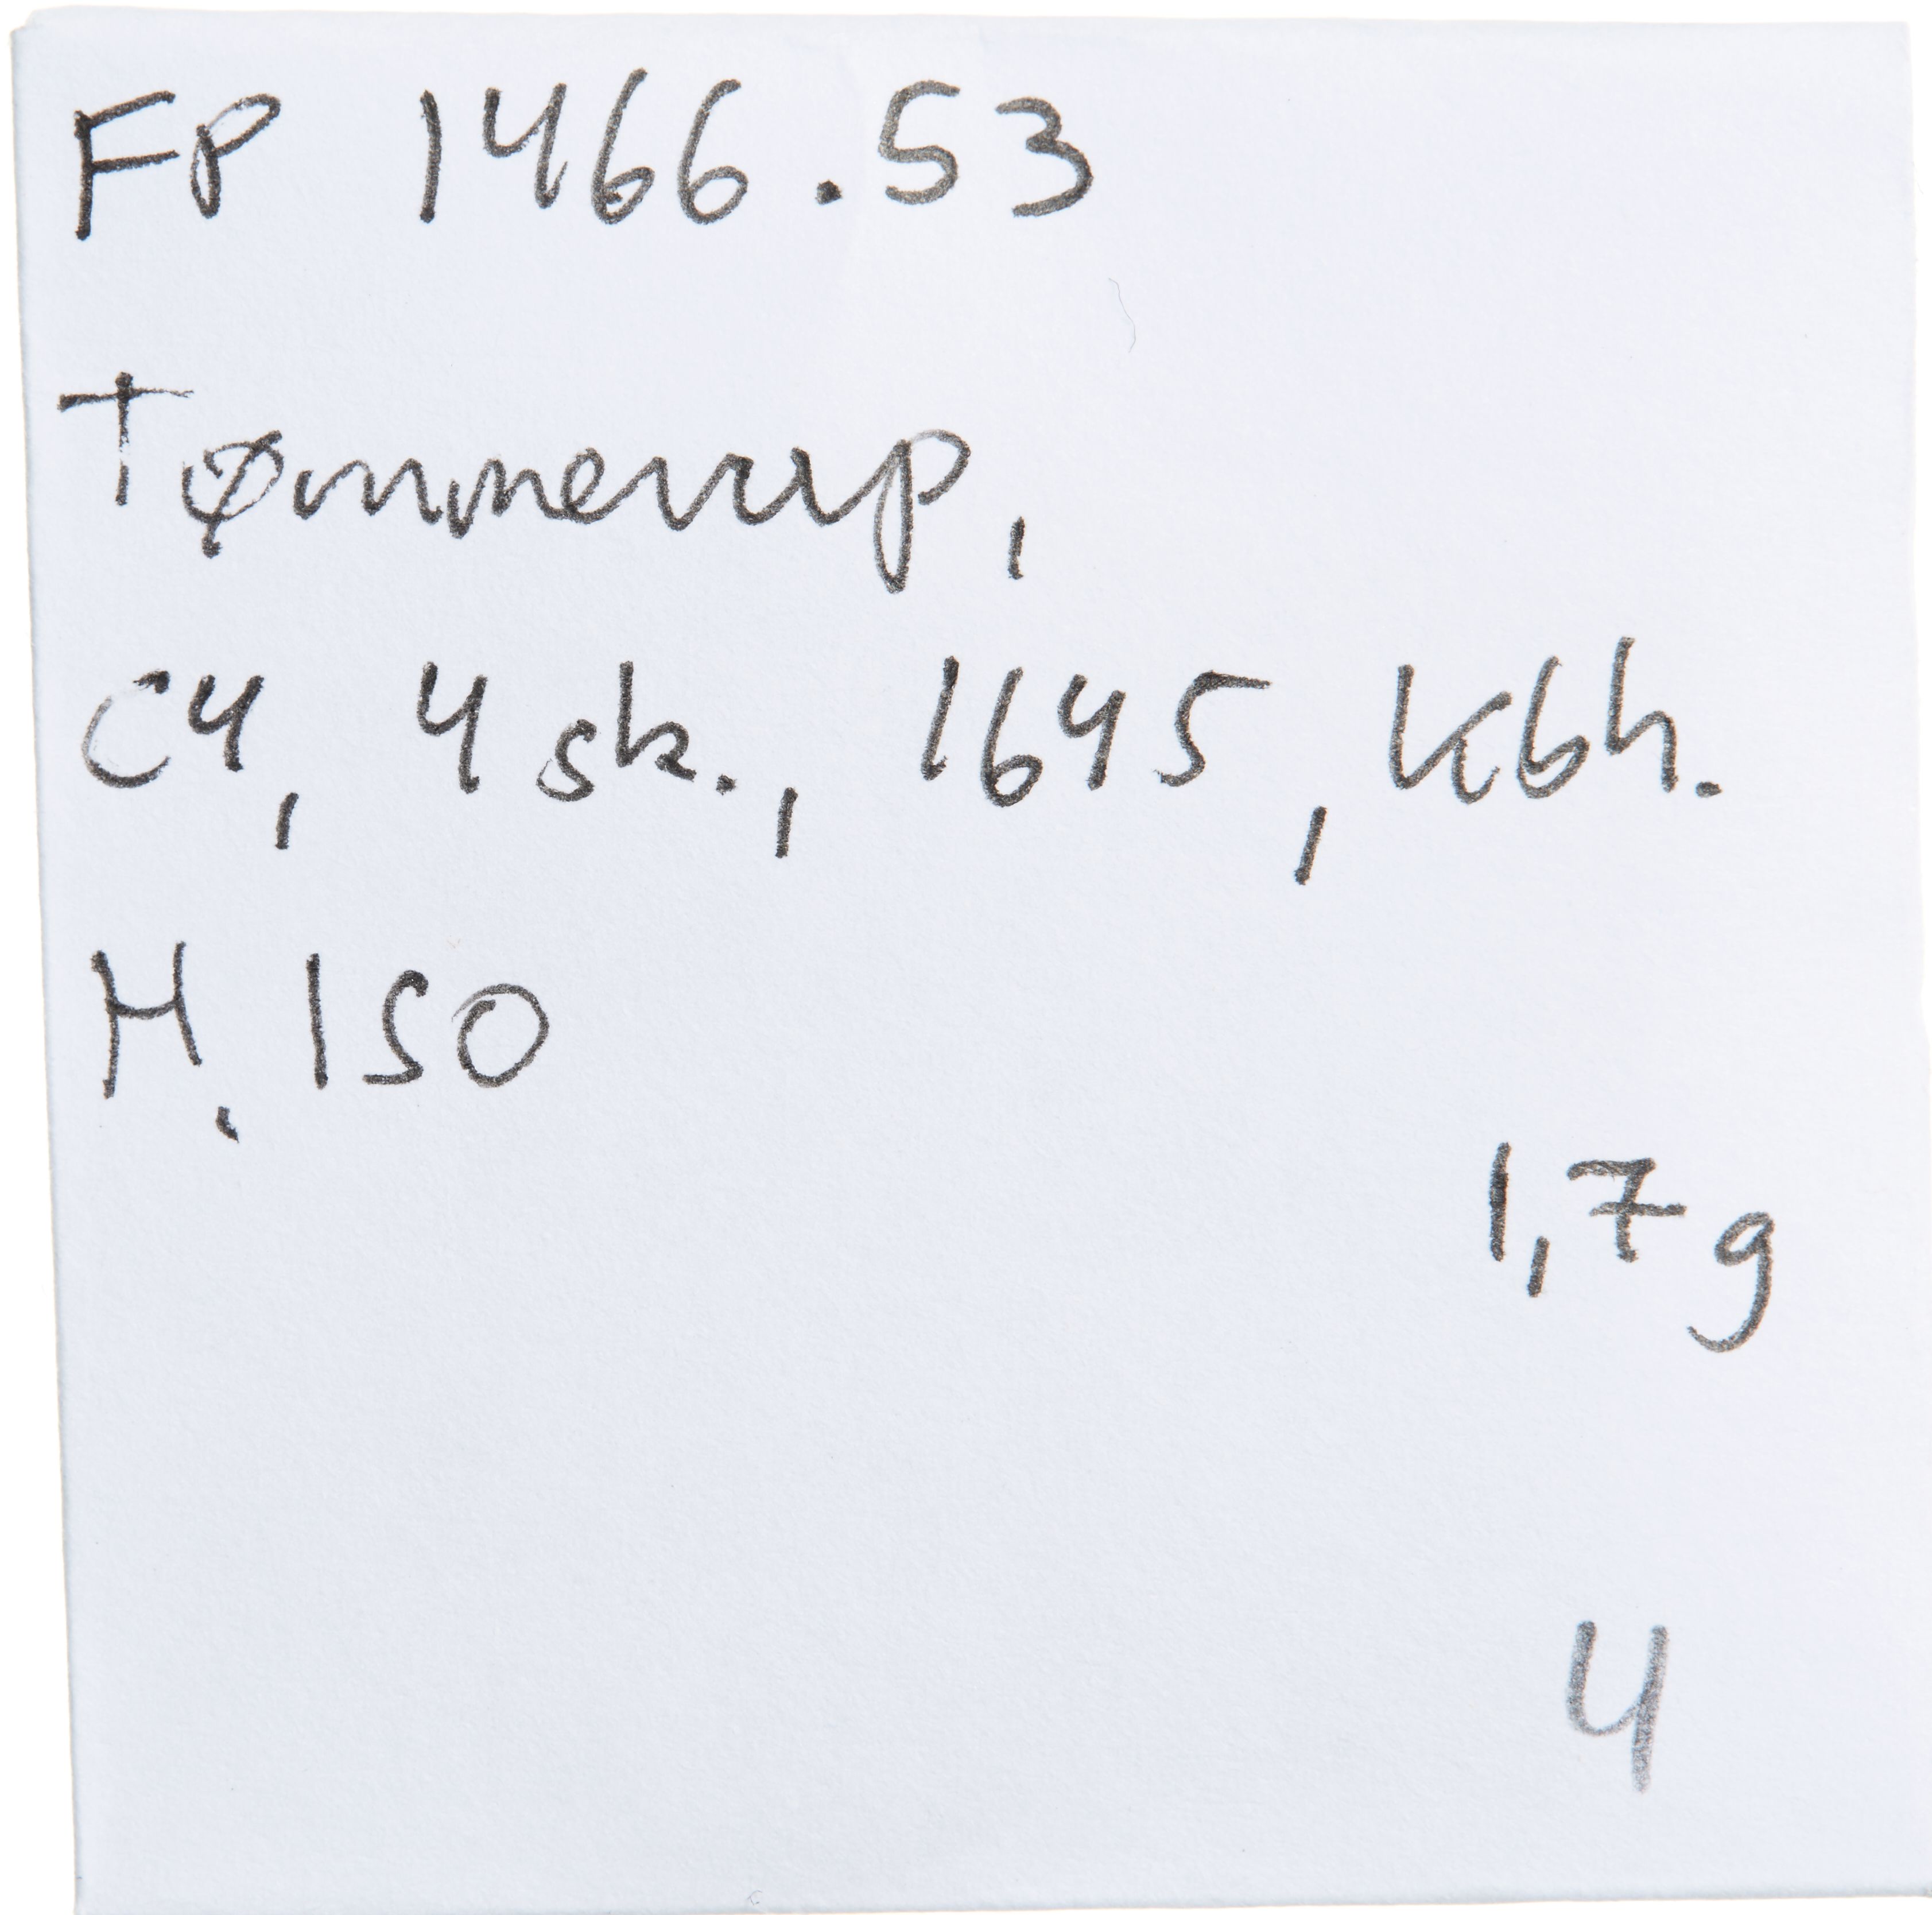 FP 1466.53
Tømmerup,
C4, 4 sk., 1645, Kbh.
H. 150
1,7 g
4